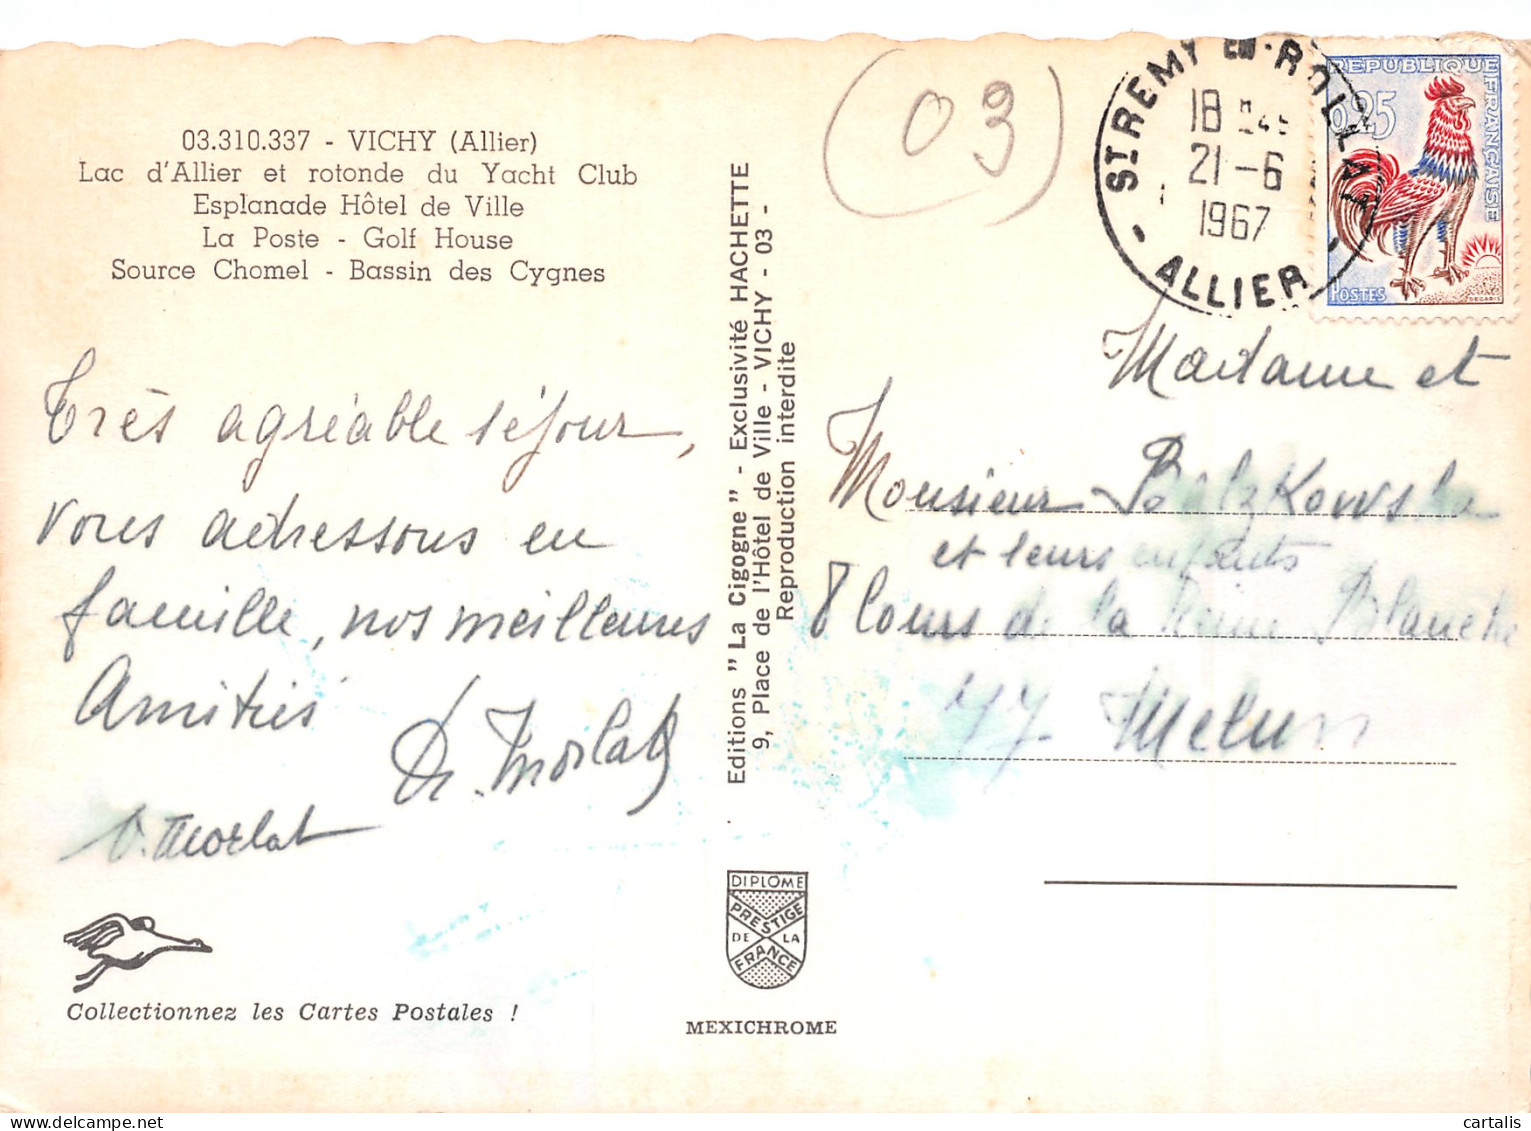 03.310.337 - VICHY (Allier)
Lac d'Allier et rotonde du Yacht Club
Esplanade Hôtel de Ville
La Poste - Golf House
Source Chomel - Bassin des Cygnes
Très agréable séjour,
vous adressons en
famille, nos meilleures
Amitiés
Morlat
Morlat
Collectionnez les Cartes Postales !
Editions "La Cigogne" - Exclusivité HACHETTE
9, Place de l'Hôtel de Ville - VICHY - 03 -
Reproduction interdite
DIPLÔME
PRESTIGE
DE LA
FRANCE
MEXICHROME
(03)
ST REMY EN ROLLAT
18 H
21-6
1967
ALLIER
REPUBLIQUE FRANÇAISE
0,25
POSTES
DECARIS
Madame et
Monsieur
et leurs enfants
8 Cours de la Reine Blanche
77 Melun
cartalis